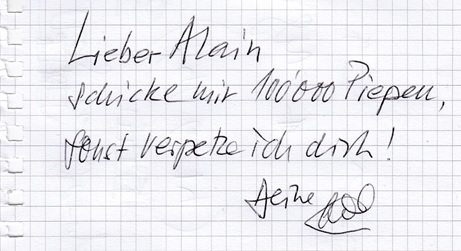 Lieber Alain
schicke mir 100'000 Piepen,
sonst verpetze ich dich!
Deine